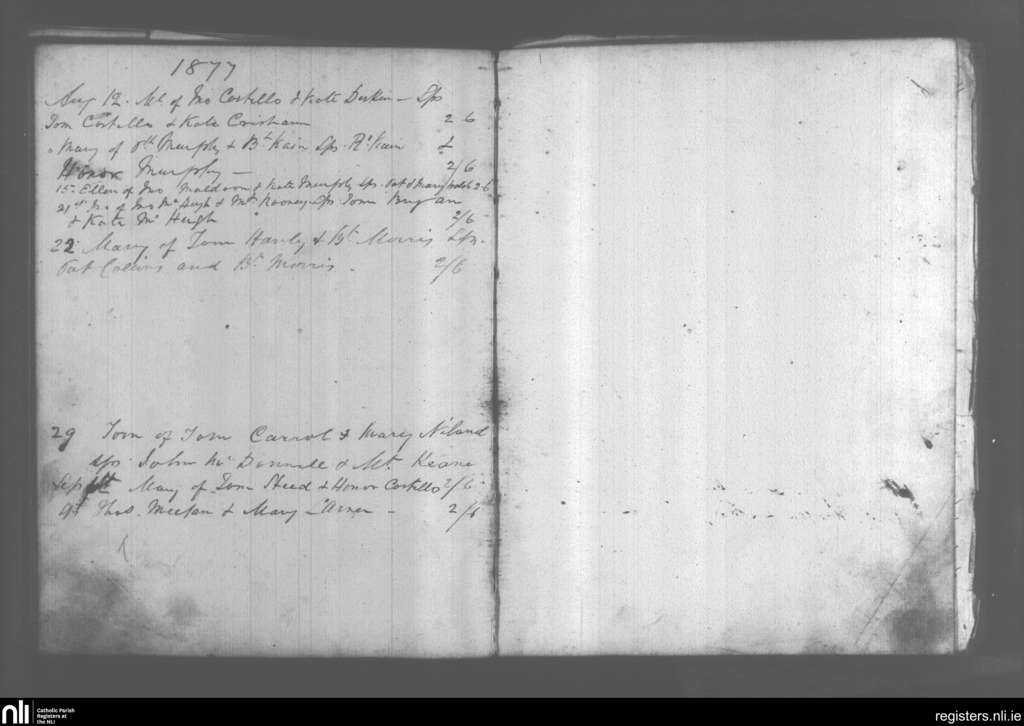 1877
Aug 12. Ml of Jno Costello & Kate Durkin - Sps
Tom Costello & Kate Crisham 2 6
" Mary of Murphy & Bt Kain Sps. Kain
Honor Murphy - 2/6
15 Ellen of Jno Muldoon & Kate Murphy Sps. Pat & Mary 2 6
21st Jno of Jno McHugh & Mt Rooney Sps Tom
& Kate McHugh 2/6
22 Mary of Tom Hanly & Bt Morris Sps.
Pat Collins and Bt Morris. 2/6
29 Tom of Tom Carrol & Mary Niland
sps John Mc & Mt Keane
Sep Mary of Tom Steed & Honor Costillo 2/6
Thos. Meehan & Mary - 2/6
nli
Catholic Parish
Registers at
the NLI
registers.nli.ie